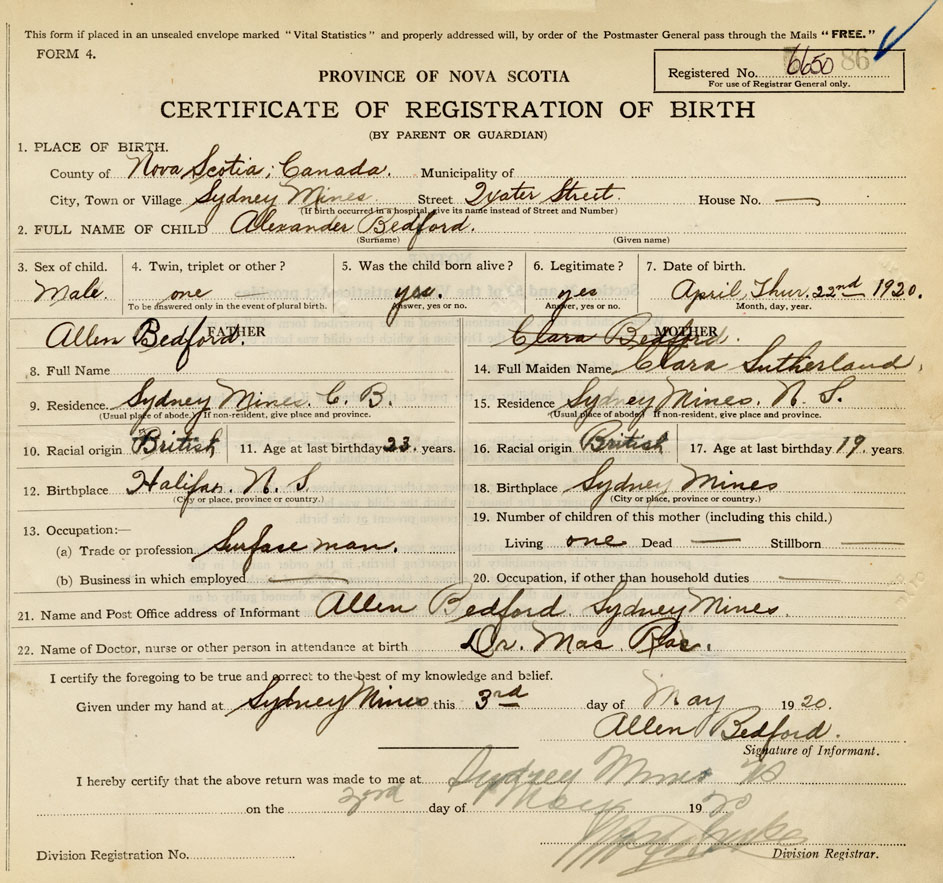 This form if placed in an unsealed envelope marked "Vital Statistics" and properly addressed will, by order of the Postmaster General pass through the Mails "FREE."
FORM 4.
Registered No. 6650 86
For use of Registrar General only.
PROVINCE OF NOVA SCOTIA
CERTIFICATE OF REGISTRATION OF BIRTH
(BY PARENT OR GUARDIAN)
1. PLACE OF BIRTH.
County of Nova Scotia, Canada. Municipality of
City, Town or Village Sydney Mines Street Street. House No. —
(If birth occurred in a hospital, give its name instead of Street and Number)
2. FULL NAME OF CHILD Alexander Bedford.
(Surname) (Given name)
3. Sex of child. 4. Twin, triplet or other? 5. Was the child born alive? 6. Legitimate? 7. Date of birth.
Male. one yes. yes April, Thur. 22nd 1920.
To be answered only in the event of plural birth. Answer, yes or no. Answer, yes or no. Month, day, year.
Allen Bedford. FATHER Clara Bedford. MOTHER
8. Full Name 14. Full Maiden Name Clara Sutherland,
9. Residence Sydney Mines. C. B. 15. Residence Sydney Mines. N. S.
(Usual place of abode.) If non-resident, give place and province. (Usual place of abode.) If non-resident, give place and province.
10. Racial origin British 11. Age at last birthday 23. years. 16. Racial origin British 17. Age at last birthday 19. years
12. Birthplace Halifax. N. S 18. Birthplace Sydney Mines
(City or place, province or country.) (City or place, province or country.)
13. Occupation:— 19. Number of children of this mother (including this child.)
(a) Trade or profession Surfase man. Living one Dead — Stillborn —
(b) Business in which employed — 20. Occupation, if other than household duties —
21. Name and Post Office address of Informant Allen Bedford Sydney Mines
22. Name of Doctor, nurse or other person in attendance at birth Dr. Mac Rae.
I certify the foregoing to be true and correct to the best of my knowledge and belief.
Given under my hand at Sydney Mines this 3rd day of May 1920.
Allen Bedford.
Signature of Informant.
I hereby certify that the above return was made to me at Sydney Mines NS
on the 3rd day of May 1920
Division Registration No. Division Registrar.